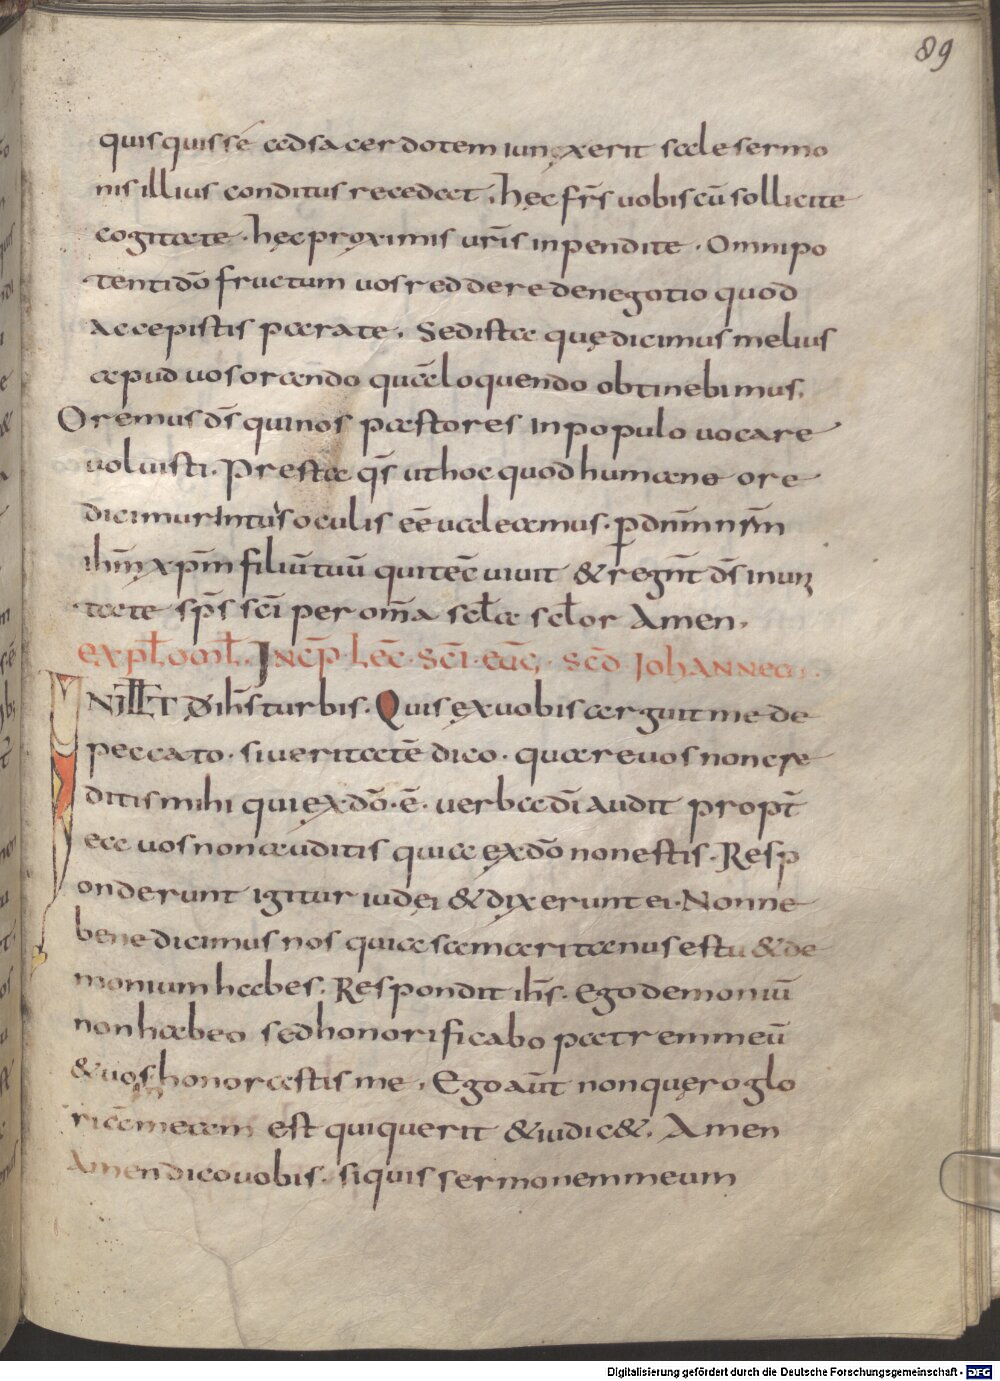 89
quisquis sé ad sacerdotem iunxerit sale sermo
nis illius conditus recedat. hęc frs̄ uobiscū sollicite
cogitate. hęc proximis urīs inpendite. Omnipo
tenti dō fructum uos reddere de negotio quod
accepistis parate. Sed ista quę dicimus melius
apud uos orando quā loquendo obtinebimus.
Oremus ds̄ qui nos pastores in populo uocare
uoluisti. Presta qs̄ ut hoc quod humano ore
dicimur intus oculis eē ualeamus. ꝑ dnm̄ nrm̄
ihm̄ xpm̄ filiū tuū qui tecū uiuit & regnt̄ ds̄ in uni
tate sps̄ scī per om̄a scl̄a scl̄or Amen.
expl̄ omł. Incp̄. Lēc. scī. euc̄. scd̄ Johannem.
IN ILLT Dix ihs̄ turbis. Quis ex uobis arguit me de
peccato. si ueritatē dico. quare uos non cre
ditis mihi qui ex dō. ē. uerba dī audit propt̄
ea uos non auditis quia ex dō non estis. Resp
onderunt igitur iudęi & dixerunt ei. Nonne
bene dicimus nos quia samaritanus es tu & de
monium habes. Respondit ihs̄. Ego demoniū
non habeo sed honorificabo patrem meū
& uos inhonorastis me. Ego aūt non quęro glo
riā meam est qui querit & iudic&. Amen
Amen dico uobis. si quis sermonem meum
Digitalisierung gefördert durch die Deutsche Forschungsgemeinschaft - DFG